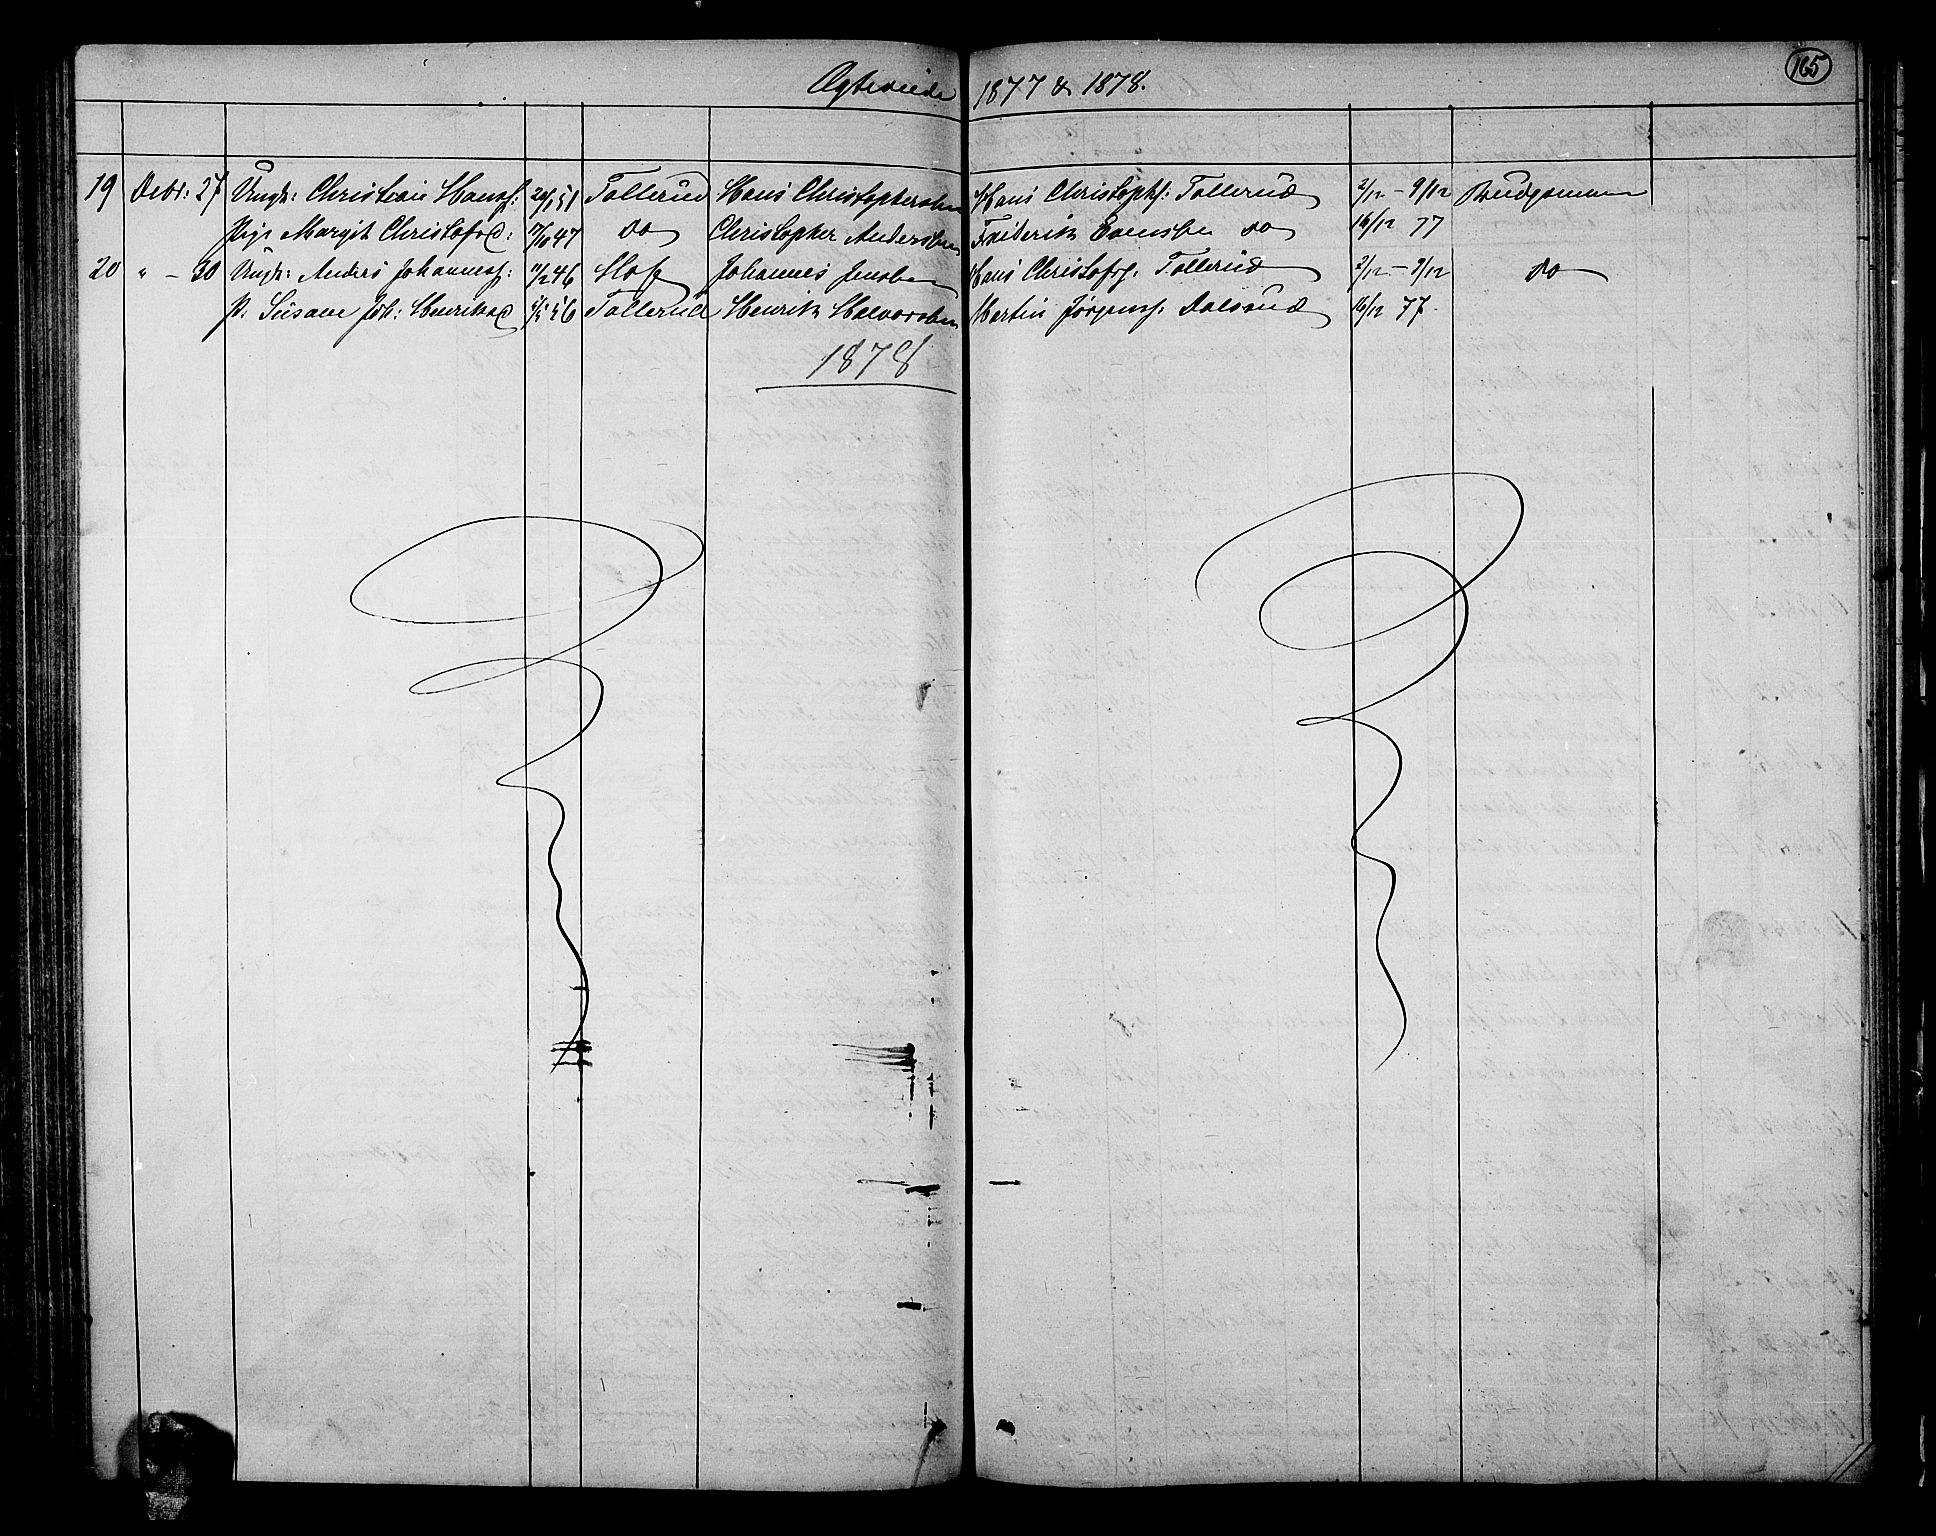 165
Ægteviede 1877 & 1878.
19 Decbr: 27 Ungk: Christian Hanss: 51 Tollerud Hans Christophersen Hans Christophs: Tollerud 2/12 – 9/12 Brudgommen
Pige Margit Christofsd: 47 do Christopher Andersen Frederik Evensen do 16/12 77
20 " – 30 Ungk: Anders Johanness: 46 Johannes Jensen Hans Christofs: Tollerud 2/12 – 9/12 do
P. Susane Joh: Henriksd 56 Tollerud Henrik Halvorsen Martin Jørgens: Dalsrud 16/12 77.
1878